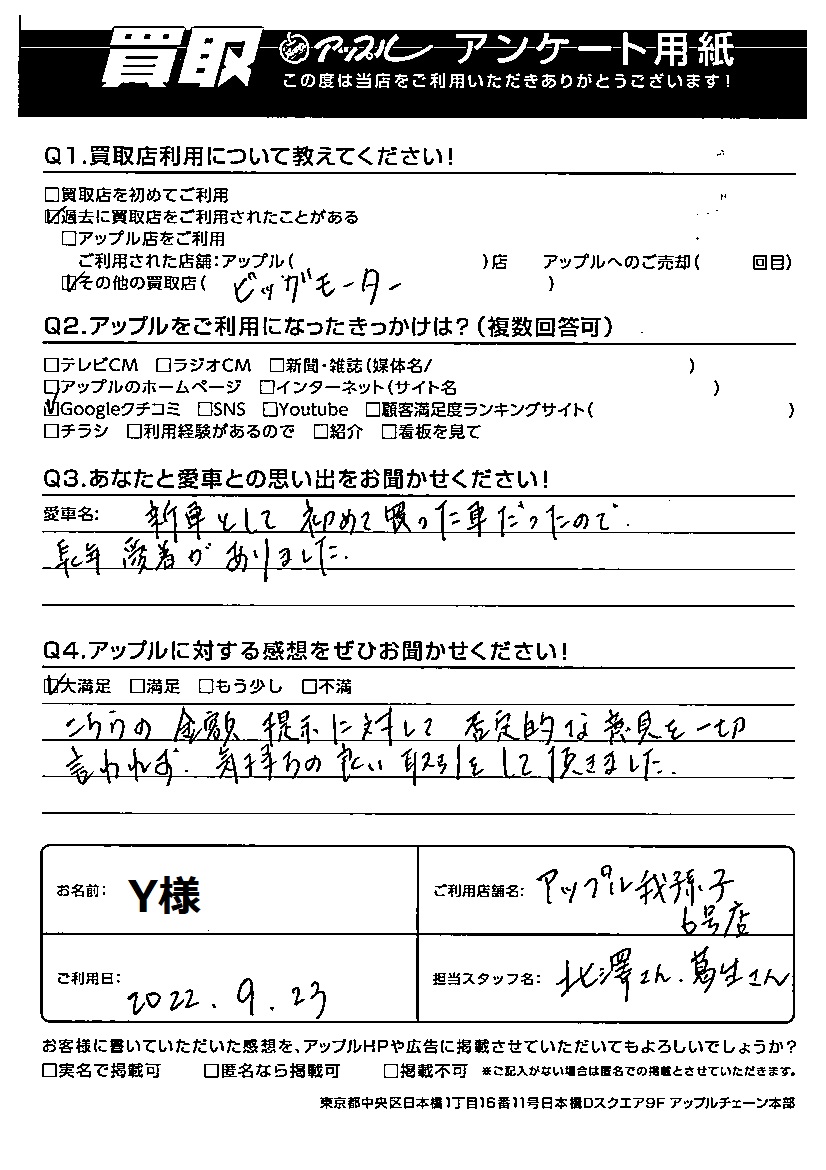 買取 アップル アンケート用紙
この度は当店をご利用いただきありがとうございます!
Q1.買取店利用について教えてください!
□買取店を初めてご利用
☑過去に買取店をご利用されたことがある
□アップル店をご利用
ご利用された店舗:アップル( )店 アップルへのご売却( 回目)
☑その他の買取店( ビッグモーター )
Q2.アップルをご利用になったきっかけは?(複数回答可)
□テレビCM □ラジオCM □新聞・雑誌(媒体名/ )
□アップルのホームページ □インターネット(サイト名 )
☑Googleクチコミ □SNS □Youtube □顧客満足度ランキングサイト( )
□チラシ □利用経験があるので □紹介 □看板を見て
Q3.あなたと愛車との思い出をお聞かせください!
愛車名: 新車として初めて買った車だったので.
長年愛着がありました.
Q4.アップルに対する感想をぜひお聞かせください!
☑大満足 □満足 □もう少し □不満
こちらの金額提示に対して否定的な意見を一切
言われず.気持ちの良い取引をして頂きました.
お名前: Y様 ご利用店舗名: アップル我孫子
6号店
ご利用日: 2022.9.23 担当スタッフ名: 北澤さん.葛生さん
お客様に書いていただいた感想を、アップルHPや広告に掲載させていただいてもよろしいでしょうか?
□実名で掲載可 □匿名なら掲載可 □掲載不可 ※ご記入がない場合は匿名での掲載とさせていただきます。
東京都中央区日本橋1丁目16番11号日本橋Dスクエア9F アップルチェーン本部